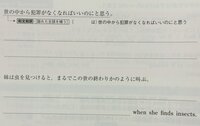 世の中から犯罪がなくなればいいのにと思う。
は）世の中から犯罪がなくなればいいのにと思う
妹は虫を見つけると、まるでこの世の終わりかのように叫ぶ。
when she finds insects.